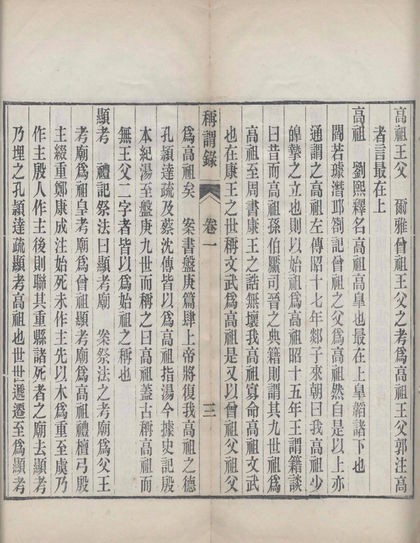 高祖王父　爾雅曾祖王父之考爲高祖王父郭注高
者言最在上
高祖　劉熙釋名高祖高皋也最在上皋韜諸下也
閻若璩潛邱劄記曾祖之父爲高祖然自是以上亦
通謂之高祖左傳昭十七年郯子來朝曰我高祖少
皥摯之立也則以始祖爲高祖昭十五年王謂籍談
曰昔而高祖孫伯黶司晉之典籍則謂其九世祖爲
高祖至周書康王之誥無壞我高祖寡命高祖文武
也在康王之世稱文武爲高祖是又以曾祖父祖
稱謂錄　卷一　三
爲高祖矣　案書盤庚篇肆上帝將復我高祖之德
孔穎達疏及蔡沈傳皆以爲高祖指湯今據史記殷
本紀湯至盤庚九世而稱之曰高祖蓋古稱高祖而
無王父二字者皆以爲始祖之稱也
顯考　禮記祭法曰顯考廟　案祭法之考廟爲父王
考廟爲祖皇考廟爲曾祖顯考廟爲高祖禮檀弓殷
主綴重鄭康成注始死未作主先以木爲重至虞乃
作主殷人作主後則聯其重縣諸死者之廟去顯考
乃埋之孔穎達疏顯考高祖也世世遞遷至爲顯考